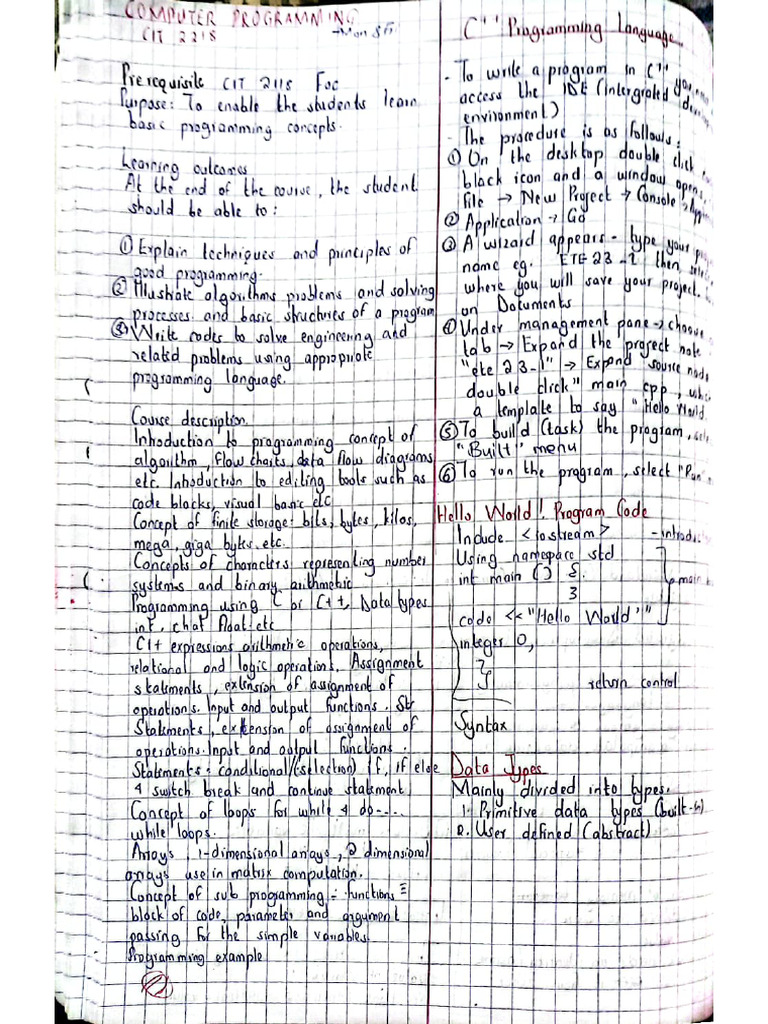 COMPUTER PROGRAMMING
CIT 2218
Prerequisite CIT 2118 Foc
Purpose: To enable the students learn
basic programming concepts.
Learning outcomes
At the end of the course, the student
should be able to:
① Explain techniques and principles of
good programming.
② Illustrate algorithms problems and solving
processes and basic structures of a program
③ Write codes to solve engineering and
related problems using appropriate
programming language.
Course description.
Introduction to programming concept of
algorithm, flow charts, data flow diagrams
etc. Introduction to editing tools such as
code blocks, visual basic etc
Concept of finite storage: bits, bytes, kilos,
mega, giga bytes. etc.
Concepts of characters representing number
systems and binary arithmetic
Programming using C or C++, Data types
int, char float etc
C1+ expressions arithmetric operations,
relational and logic operations, Assignment
statements, extension of assignment of
operations. Input and output functions. Str
Statements, extension of assignment of
operations. Input and output functions.
Statements: conditional/(selection) if, if else
& switch break and continue statement
Concept of loops for while & do-...
while loops.
Arrays, 1-dimensional arrays, 2 dimensional
arrays use in matrix computation.
Concept of sub programming - functions =
block of code, parameter and argument
passing for the simple variables.
Programming example
C++ Programming Language
- To write a program in C++ you
access the IDE (Intergrated
environment)
- The procedure is as follows:
① On the desktop double click
black icon and a window opens.
file → New Project → Console →
② Application → Go
③ A wizard appears - type your
name eg. ETE 23-1 then
where you will save your project.
on Documents
④ Under management pane → choose
tab → Expand the project note
"ete 23-1" → Expand source node
double click" main cpp,
a template to say "Hello World
⑤ To build (task) the program,
"Built" menu
⑥ To run the program, select "Run"
Hello World! Program Code
Include <iostream>
Using namespace std
int main () {
3
code << "Hello World'"
integer 0,
}
return control
Syntax
Data Types
Mainly divided into types.
1. Primitive data types (built-in)
2. User defined (abstract)